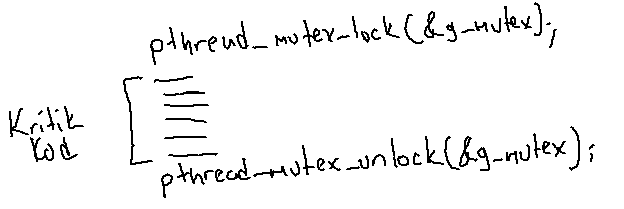 pthread_mutex_lock(&g_mutex);
Kritik
Kod
pthread_mutex_unlock(&g_mutex);